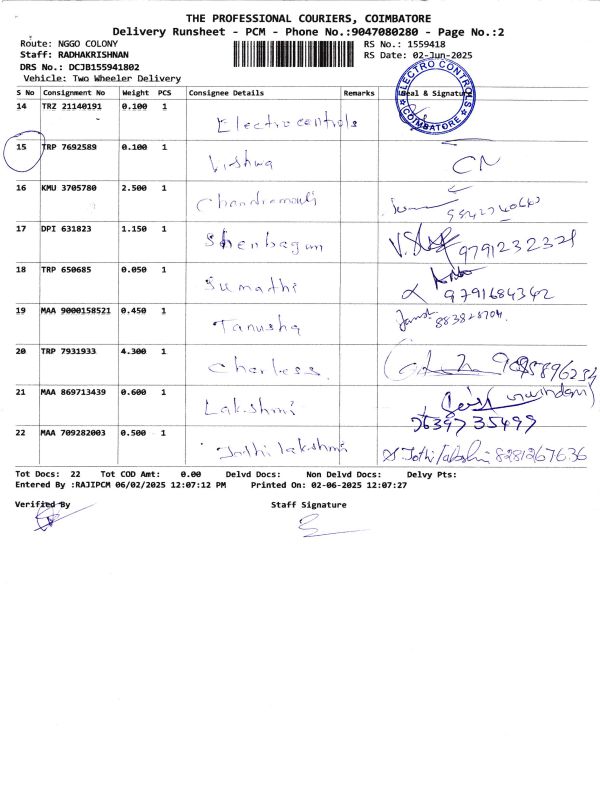 THE PROFESSIONAL COURIERS, COIMBATORE
Delivery Runsheet - PCM - Phone No.:9047080280 - Page No.:2
Route: NGGO COLONY RS No.: 1559418
Staff: RADHAKRISHNAN RS Date: 02-Jun-2025
DRS No.: DCJB155941802
Vehicle: Two Wheeler Delivery
ELECTRO CONTROLS
COIMBATORE
S No Consignment No Weight PCS Consignee Details Remarks Seal & Signature
14 TRZ 21140191 0.100 1
Electrocontrols
15 TRP 7692589 0.100 1
Vishwa CN
16 KMU 3705780 2.500 1
Chandramouli
17 DPI 631823 1.150 1
Shenbagam 9791232321
18 TRP 650685 0.050 1
Sumathi 9791684342
19 MAA 9000158521 0.450 1
Tanusha
20 TRP 7931933 4.300 1
Charless
21 MAA 869713439 0.600 1
Lakshmi
22 MAA 709282003 0.500 1
Jothi lakshmi S. Jothi lakshmi 8281267636
Tot Docs: 22 Tot COD Amt: 0.00 Delvd Docs: Non Delvd Docs: Delvy Pts:
Entered By :RAJIPCM 06/02/2025 12:07:12 PM Printed On: 02-06-2025 12:07:27
Verified By Staff Signature